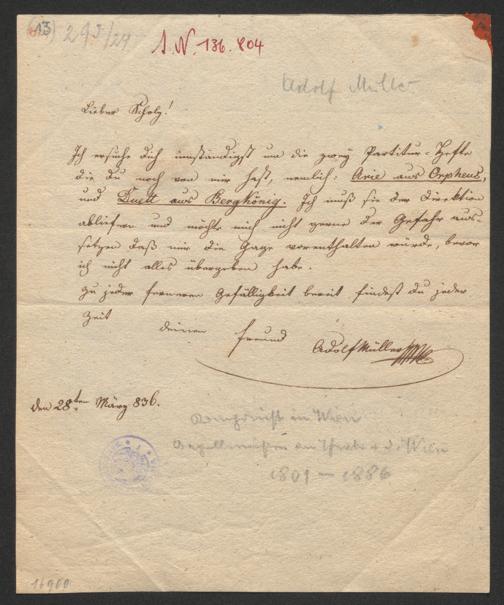 13) 295/24
I.N. 136.804
Adolf Müller
Lieber Scholz!
Ich ersuche dich inständigst um die zwey Partitur-Hefte
die du noch von mir hast, nemlich: Arie aus Orpheus,
und Duett aus Bergkönig. Ich muß sie der Direktion
abliefern und möchte mich nicht gerne der Gefahr aus-
setzen daß mir die Gage vorenthalten würde, bevor
ich nicht alles übergeben habe.
Zu jeder ferneren Gefälligkeit bereit findest du jeder
Zeit
deinen Freund Adolf Müller
den 28ten März 836.
Komponist in Wien
Kapellmeister am Theater a. d. Wien
1801 – 1886
16900